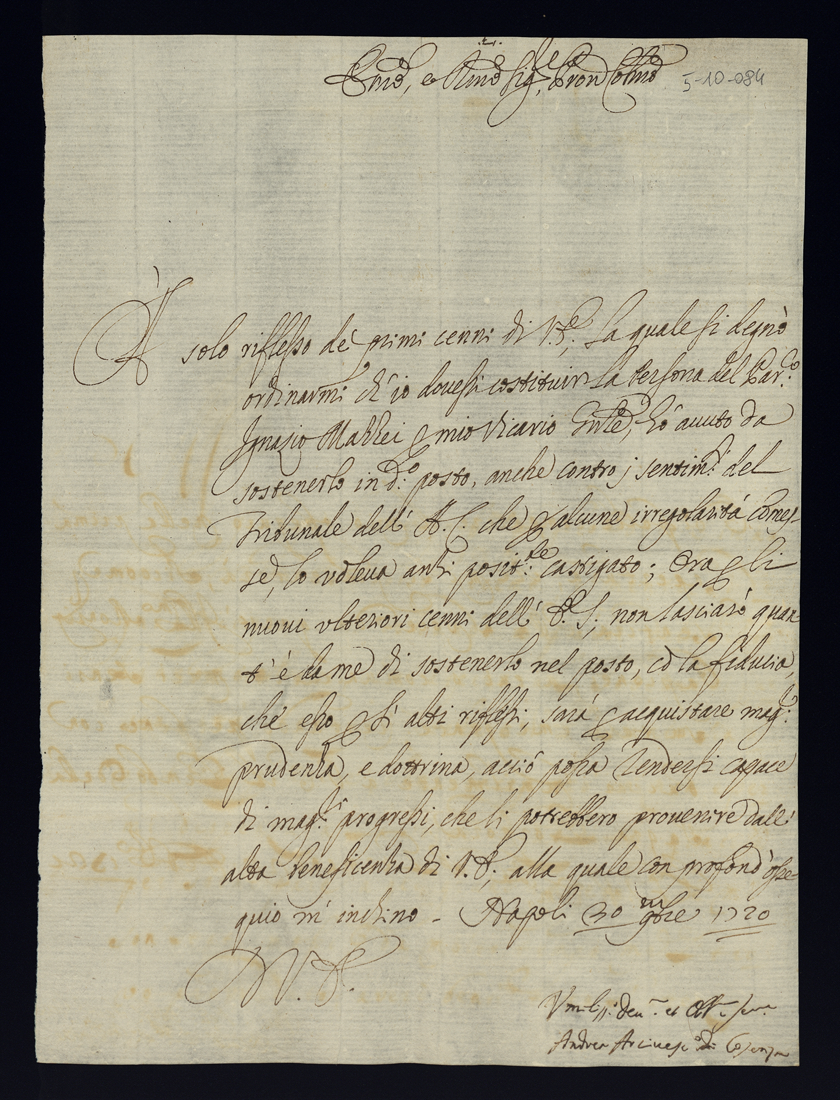 Emo, e Rmo Sig.re Pron Colmo 5-10-084
A solo riflesso de' primi cenni di V.E., la quale si degnò
ordinarmi ch' io dovessi costituir la Persona del Par.o
Ignazio Mazzei p mio Vicario Gnle, hò avuto da
sostenerlo in d.o posto, anche contro i sentim.ti del
Tribunale dell' A. C. che p alcune irregolarità comes-
se, lo voleva anzi posit.te castigato; Ora p li
nuovi ulteriori cenni dell' E. S., non lasciarò quan
t' è da me di sostenerlo nel posto, cō la fiducia,
che esso p sì alti riflessi, sarà p acquistare mag.r
prudenza, e dottrina, acciò possa rendersi capace
di mag.ri progressi, che li potrebbero provenire dall'
alta beneficenza di V.E., alla quale con profond' osse-
quio m' inchino - Napoli 30 9bre 1720
D V. E.
Umiliss. dev. et Obl. ser.
Andrea Arcivesc.o di Cosenza